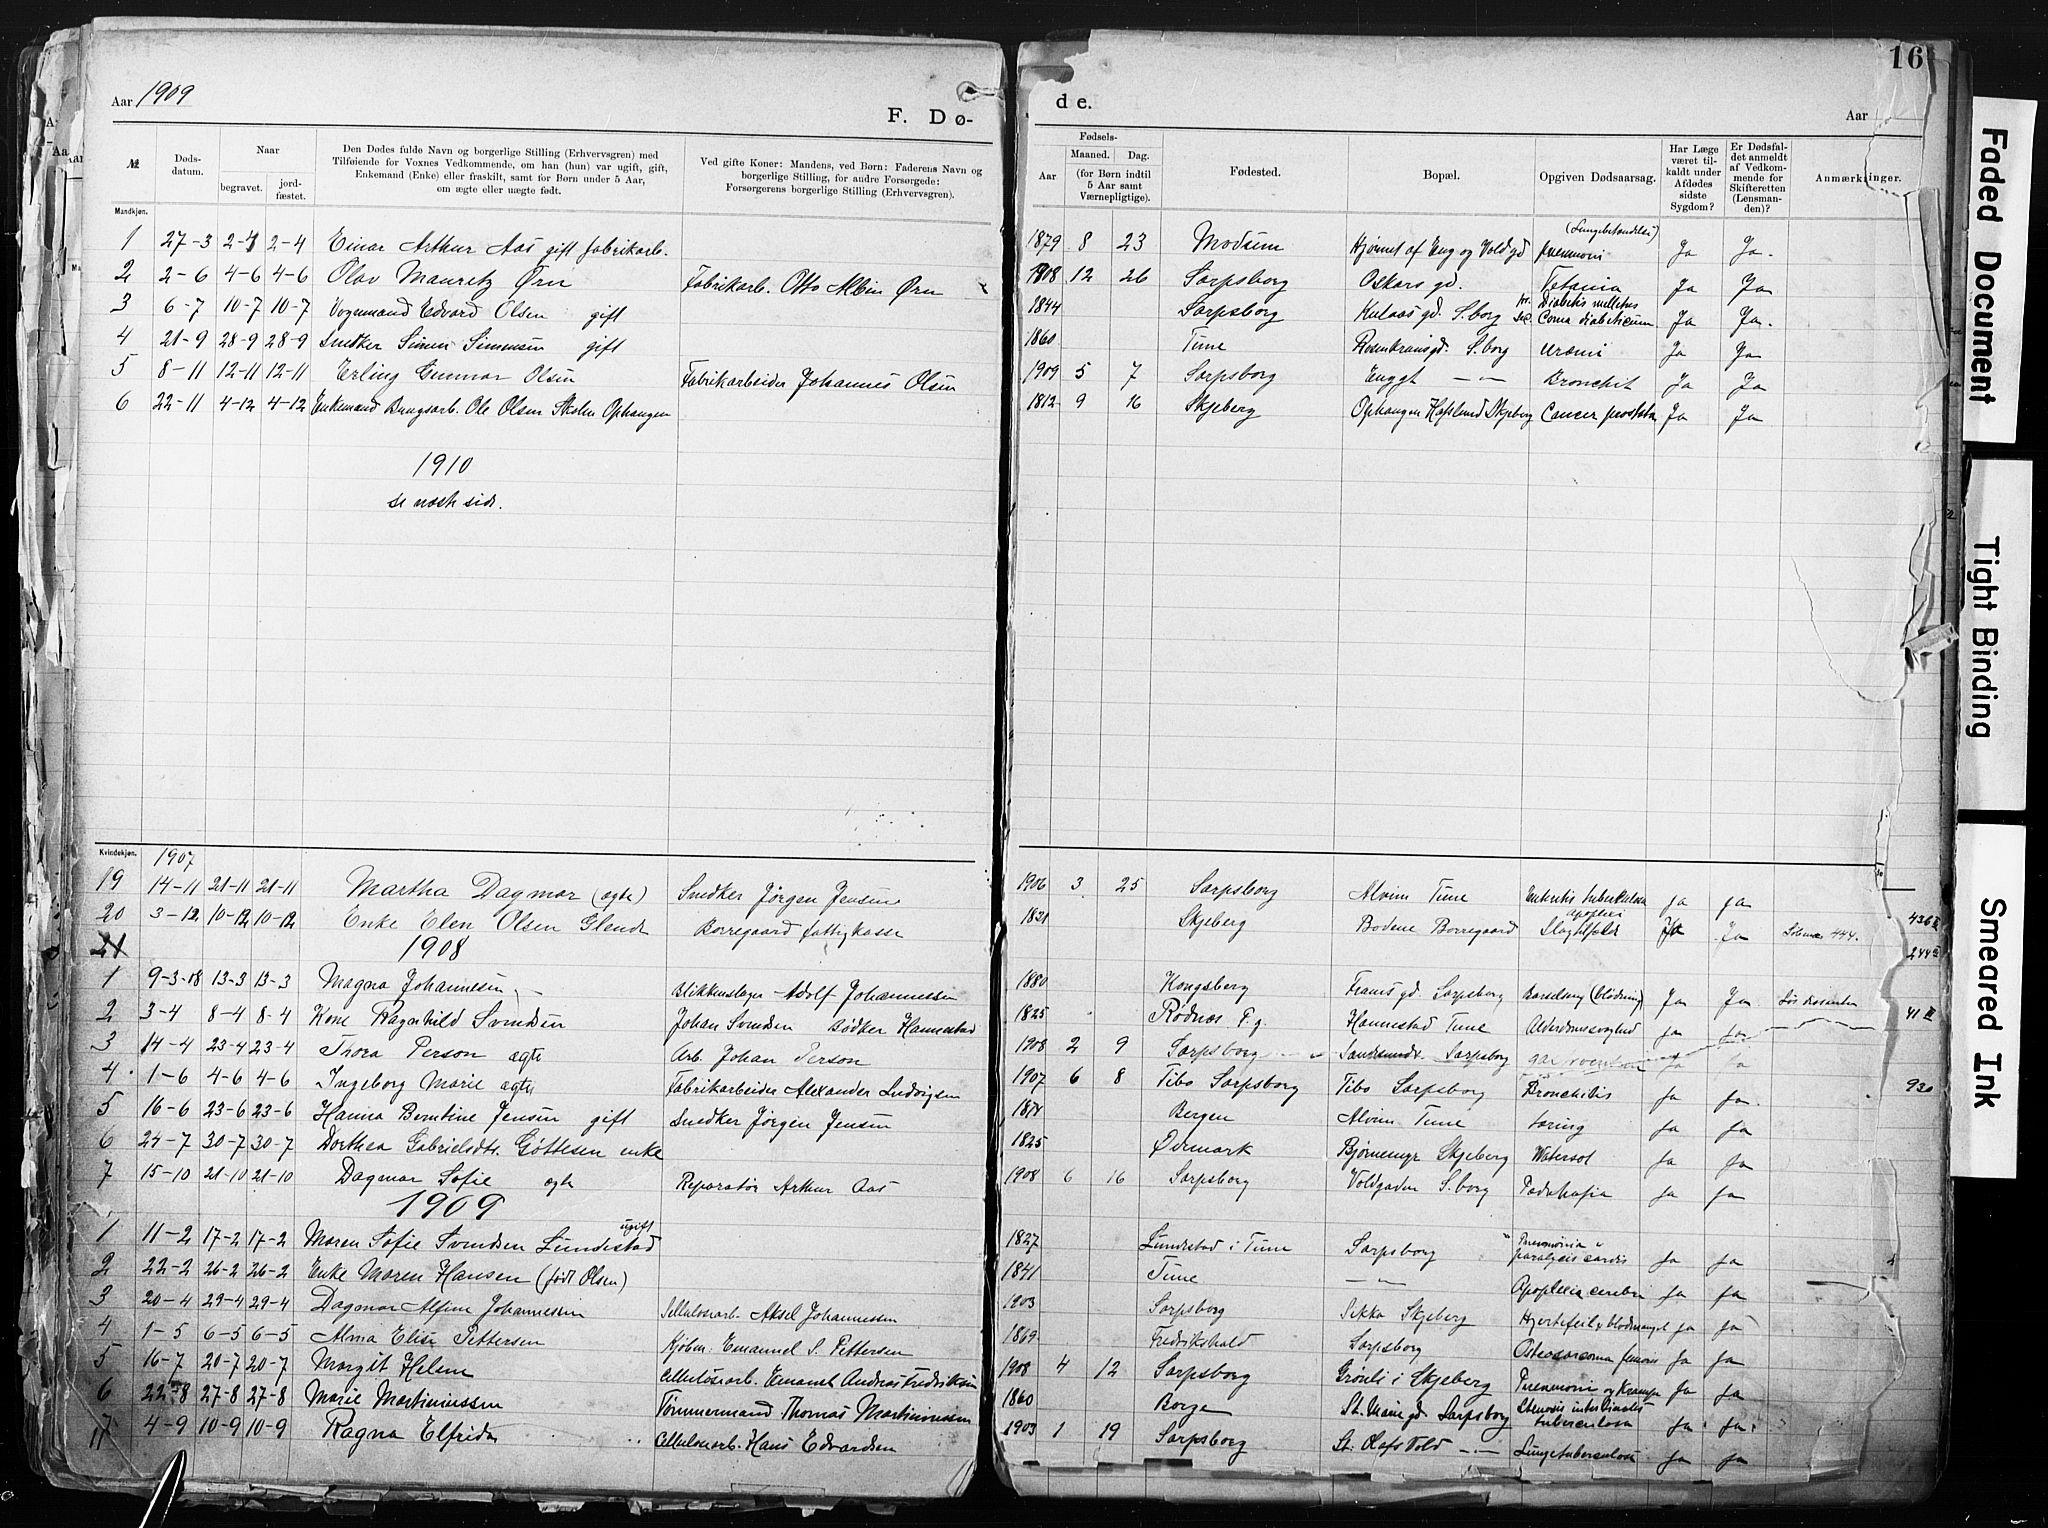 Aar 1909
F. Dø-
№
Døds-
datum.
Naar
begravet.
jord-
fæstet.
Den Dødes fulde Navn og borgerlige Stilling (Erhvervsgren) med
Tilføiende for Voxnes Vedkommende, om han (hun) var ugift, gift,
Enkemand (Enke) eller fraskilt, samt for Børn under 5 Aar,
om ægte eller uægte født.
Ved gifte Koner: Mandens, ved Børn: Faderens Navn og
borgerlige Stilling, for andre Forsørgede:
Forsørgerens borgerlige Stilling (Erhvervsgren).
Mandkjøn.
1 27-3 2-4 2-4 Einar Arthur Aas gift fabrikarb.
2 2-6 4-6 4-6 Olav Mauritz Ørn Fabrikarb. Otto Albin Ørn
3 6-7 10-7 10-7 Vognmand Edvard Olsen gift
4 21-9 28-9 28-9 Snedker Simen Simensen gift
5 8-11 12-11 12-11 Erling Gunnar Olsen Fabrikarbeider Johannes Olsen
6 22-11 4-12 4-12 Enkemand Brugsarb. Ole Olsen Skolen Ophaugen
1910
se næste side.
Kvindekjøn. 1907
19 14-11 21-11 21-11 Martha Dagmar (ægte) Snedker Jørgen Jensen
20 3-12 10-12 10-12 Enke Elen Olsen Glende Borregaard fattigkasse
21 1908
1 9-3-08 13-3 13-3 Magna Johannesen Blikkenslager Adolf Johannessen
2 3-4 8-4 8-4 Kone Ragnhild Svendsen Johan Svendsen Bødker Hannestad
3 14-4 23-4 23-4 Thora Person ægte Arb. Johan Person
4 1-6 4-6 4-6 Ingeborg Marie ægte Fabrikarbeider Alexander Ludvigsen
5 16-6 23-6 23-6 Hanna Berntine Jensen gift Snedker Jørgen Jensen
6 24-7 30-7 30-7 Dorthea Gabrielsdtr. Gøttesen enke
7 15-10 21-10 21-10 Dagmar Sofie ægte Reparatør Arthur Aas
1909
1 11-2 17-2 17-2 Maren Sofie Svendsen Lundestad ugift
2 22-2 26-2 26-2 Enke Maren Hansen (født Olsen)
3 20-4 29-4 29-4 Dagmar Alfine Johannessen Cellulosearb. Aksel Johannessen
4 1-5 6-5 6-5 Alma Elise Pettersen Kjøbm. Emanuel S. Pettersen
5 16-7 20-7 20-7 Margit Helene Cellulosearb. Emanuel Andreas Fredriksen
6 22-8 27-8 27-8 Marie Martiniussen Tømmermand Thomas Martiniussen
7 4-9 10-9 10-9 Ragna Elfrida Cellulosearb. Hans Edvardsen
16
de.
Aar
Fødsels-
Aar
Maaned. Dag.
(for Børn indtil
5 Aar samt
Værnepligtige).
Fødested.
Bopæl.
Opgiven Dødsaarsag.
Har Læge
været til-
kaldt under
Afdødes
sidste
Sygdom?
Er Dødsfal-
det anmeldt
af Vedkom-
mende for
Skifteretten
(Lensman-
den)?
Anmærkninger.
1879 8 23 Modum Hjørnet af Eng og Voldgd pneumoni Ja Ja.
1908 12 26 Sarpsborg Oskars gd. Tetania Ja Ja
1844 Sarpsborg Kulaas gd. S.borg Diabetis mellitus
Coma diabeticum Ja Ja.
1860 Tune Rosenkransgd. S.borg Uræmi Ja Ja
1909 5 7 Sarpsborg Enggt — " — Bronchit Ja Ja
1812 9 16 Skjeberg Ophaugen Hafslund Skjeberg Cancer prostata Ja Ja
1906 3 25 Sarpsborg Alvim Tune Enteritis tuberkulosa ja ja
1831 Skjeberg Bodene Borregaard apoplexi
Slagtilfælde Ja Ja 444. 436 II
244 II
1880 Kongsberg Frams gd. Sarpsborg Barselseng (blødning) Ja Ja
1825 Rødnæs P.g. Hannestad Tune Alderdomssvaghed Ja Ja 41 II
1908 2 9 Sarpsborg Sarpsborg
1907 6 8 Tibo Sarpsborg Tibo Sarpsborg Bronchitis Ja Ja. 930
Bergen Alvim Tune tæring Ja Ja
1825 Ødemark Bjørnemyr Skjeberg Watersot Ja Ja
1908 6 16 Sarpsborg Voldgaden S.borg Ja Ja
1827 Lundestad i Tune Sarpsborg Pneumonia
paralysis cordis Ja Ja
1841 Tune — " — Apoplexia cerebri Ja Ja
1903 Sarpsborg Sikka Skjeberg Hjertefeil & blodmangel Ja Ja
1869 Fredrikshald Sarpsborg Osteosarcoma femoris Ja Ja
1908 4 12 Sarpsborg Grønli i Skjeberg Pneumoni og Krampe Ja Ja
1860 Borge St. Marie gd Sarpsborg Stenosis intestinalis
tuberculosa Ja Ja
1903 1 19 Sarpsborg St. Olafs Vold — " — Lungetuberculose Ja Ja
Faded Document
Tight Binding
Smeared Ink